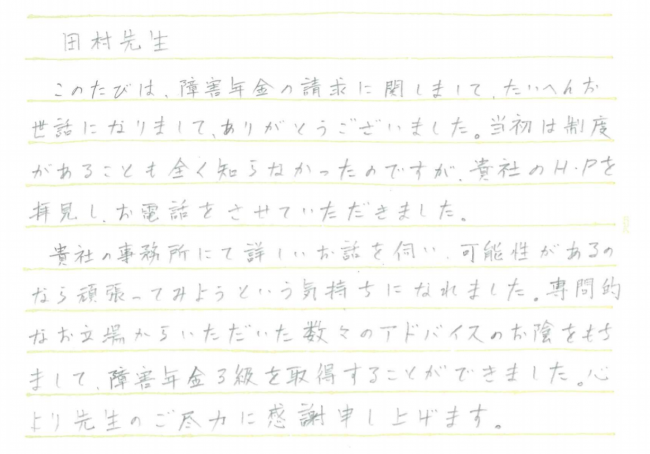 田村先生
このたびは、障害年金の請求に関しまして、たいへんお
世話になりまして、ありがとうございました。当初は制度
があることも全く知らなかったのですが、貴社のH・Pを
拝見し、お電話をさせていただきました。
貴社の事務所にて詳しいお話を伺い、可能性があるの
なら頑張ってみようという気持ちになれました。専問的
なお立場からいただいた数々のアドバイスのお陰をもち
まして、障害年金3級を取得することができました。心
より先生のご尽力に感謝申し上げます。